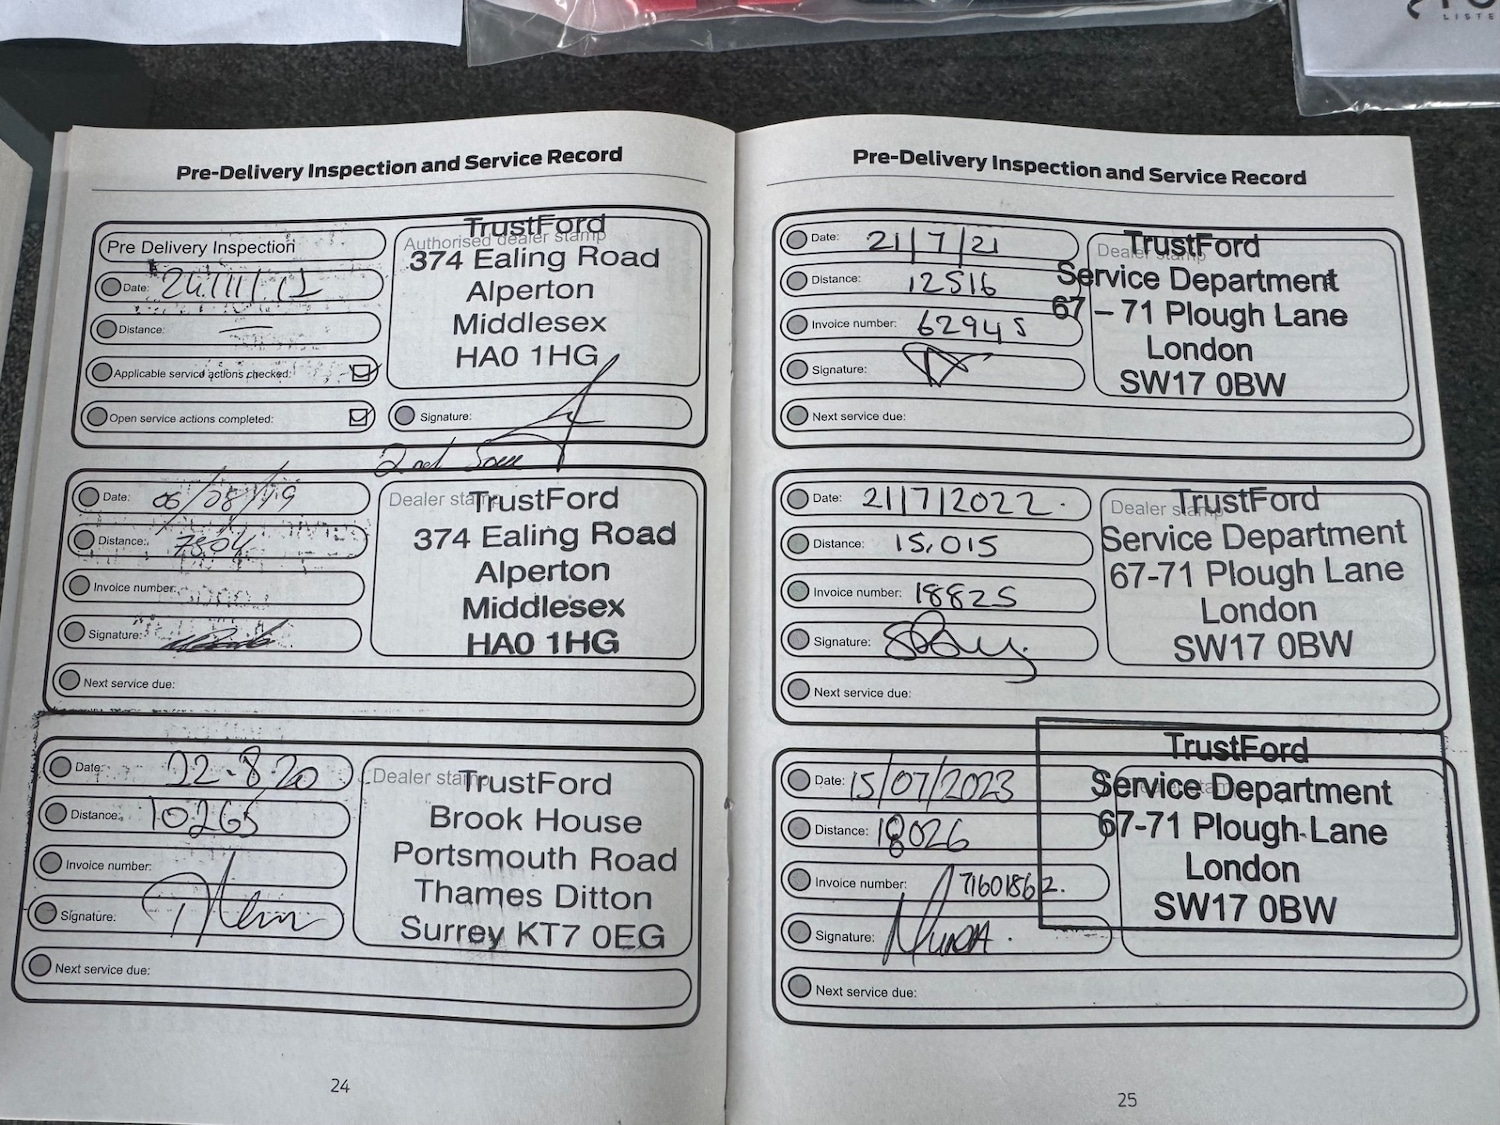 LISTE
Pre-Delivery Inspection and Service Record
Pre Delivery Inspection
Date:
Distance: —
Applicable service actions checked:
Open service actions completed:
Authorised dealer stamp
TrustFord
374 Ealing Road
Alperton
Middlesex
HA0 1HG
Signature:
2nd
Date: 06/08/19
Distance: 7504
Invoice number:
Signature:
Next service due:
Dealer stamp
TrustFord
374 Ealing Road
Alperton
Middlesex
HA0 1HG
Date: 22.8.20
Distance: 10265
Invoice number:
Signature:
Next service due:
Dealer stamp
TrustFord
Brook House
Portsmouth Road
Thames Ditton
Surrey KT7 0EG
24
Pre-Delivery Inspection and Service Record
Date: 21/7/21
Distance: 12516
Invoice number: 62945
Signature:
Next service due:
Dealer stamp
TrustFord
Service Department
67 – 71 Plough Lane
London
SW17 0BW
Date: 21/7/2022.
Distance: 15,015
Invoice number: 18825
Signature:
Next service due:
Dealer stamp
TrustFord
Service Department
67-71 Plough Lane
London
SW17 0BW
Date: 15/07/2023
Distance: 18026
Invoice number: 71601862.
Signature:
Next service due:
TrustFord
Service Department
67-71 Plough Lane
London
SW17 0BW
25